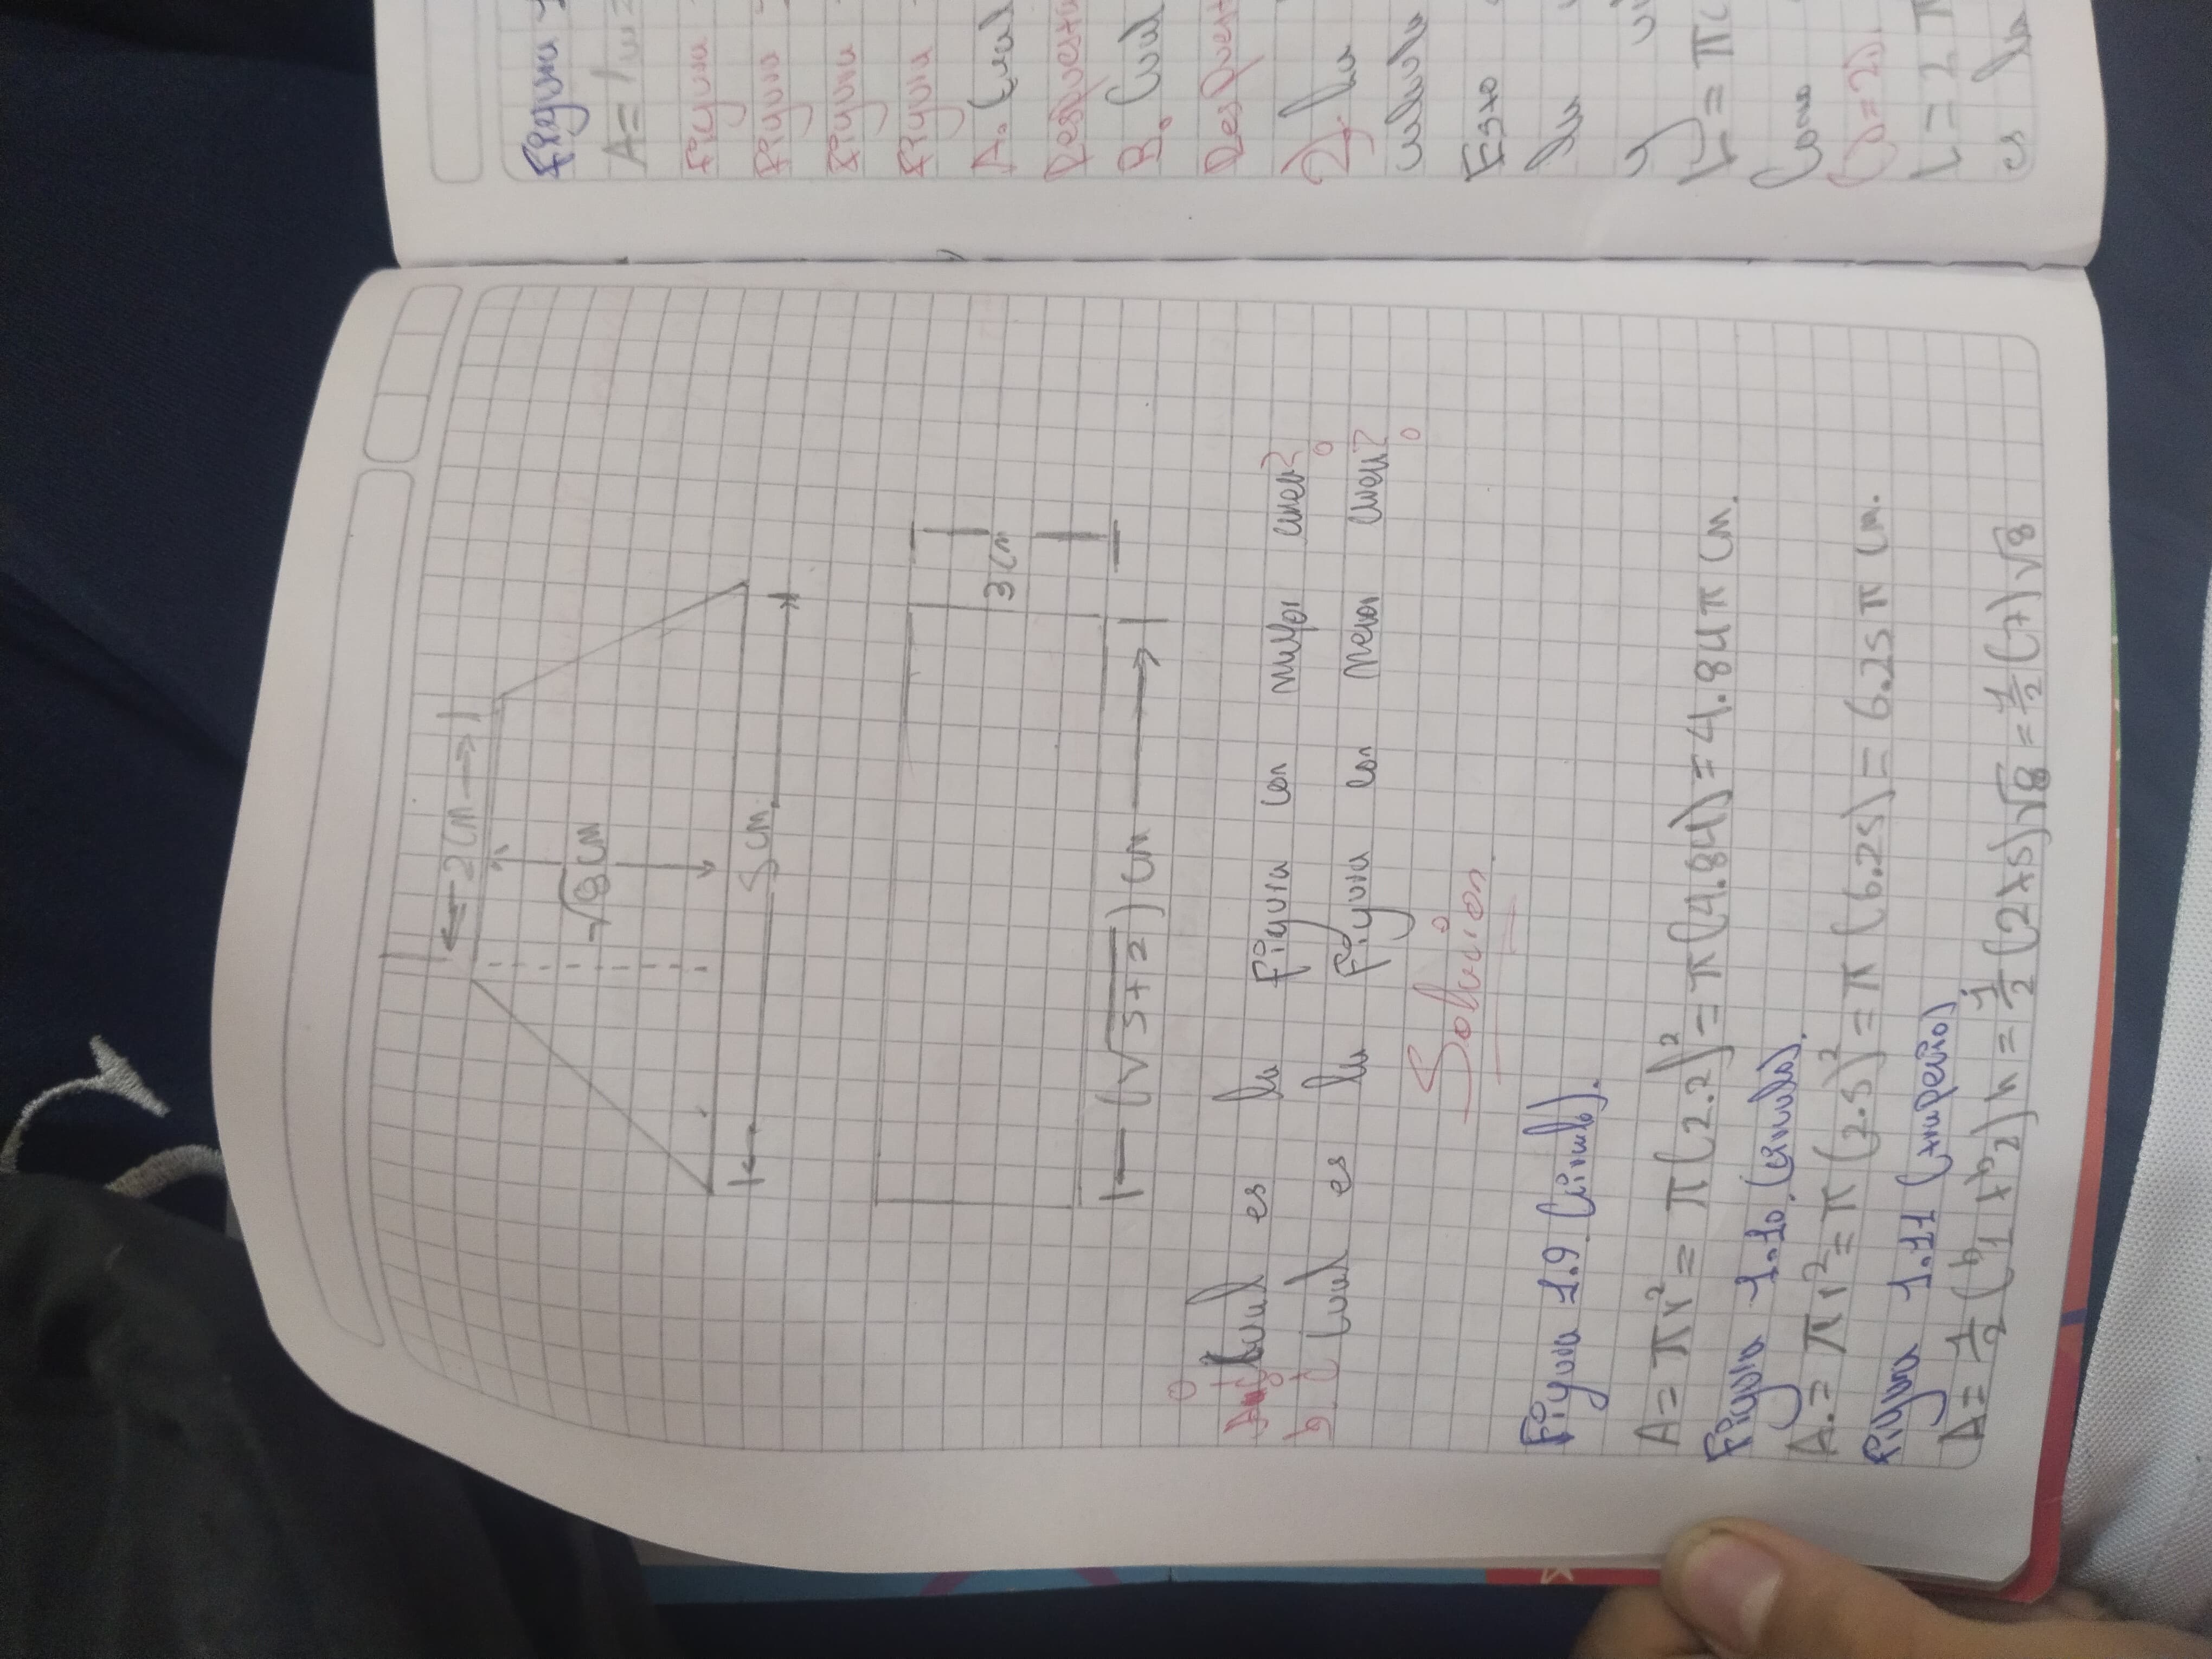 2 cm
√8 cm
5 cm.
3 cm
(√5+2) cm
A. ¿Cual es la figura con mayor area?
b. ¿Cual es la figura con menor area?
Solucion.
Figura 1.9. (circulo).
A= πr² = π(2.2)² = π(4.84) = 4.84π cm.
Figura 1.10. (circulo).
A.= πr² = π(2.5)² = π(6.25) = 6.25π cm.
Figura 1.11 (trapecio).
A= 1/2 (b1 + b2)h = 1/2 (2+5)√8 = 1/2 (7)√8
Figura 1
A=
Figura
Figura
Figura
Figura
A. Cual
Respuesta
B. Cual
Respuest
2). La
calcula
Esto
la
y
L = π
Como
(D=2).
L=2π
es la